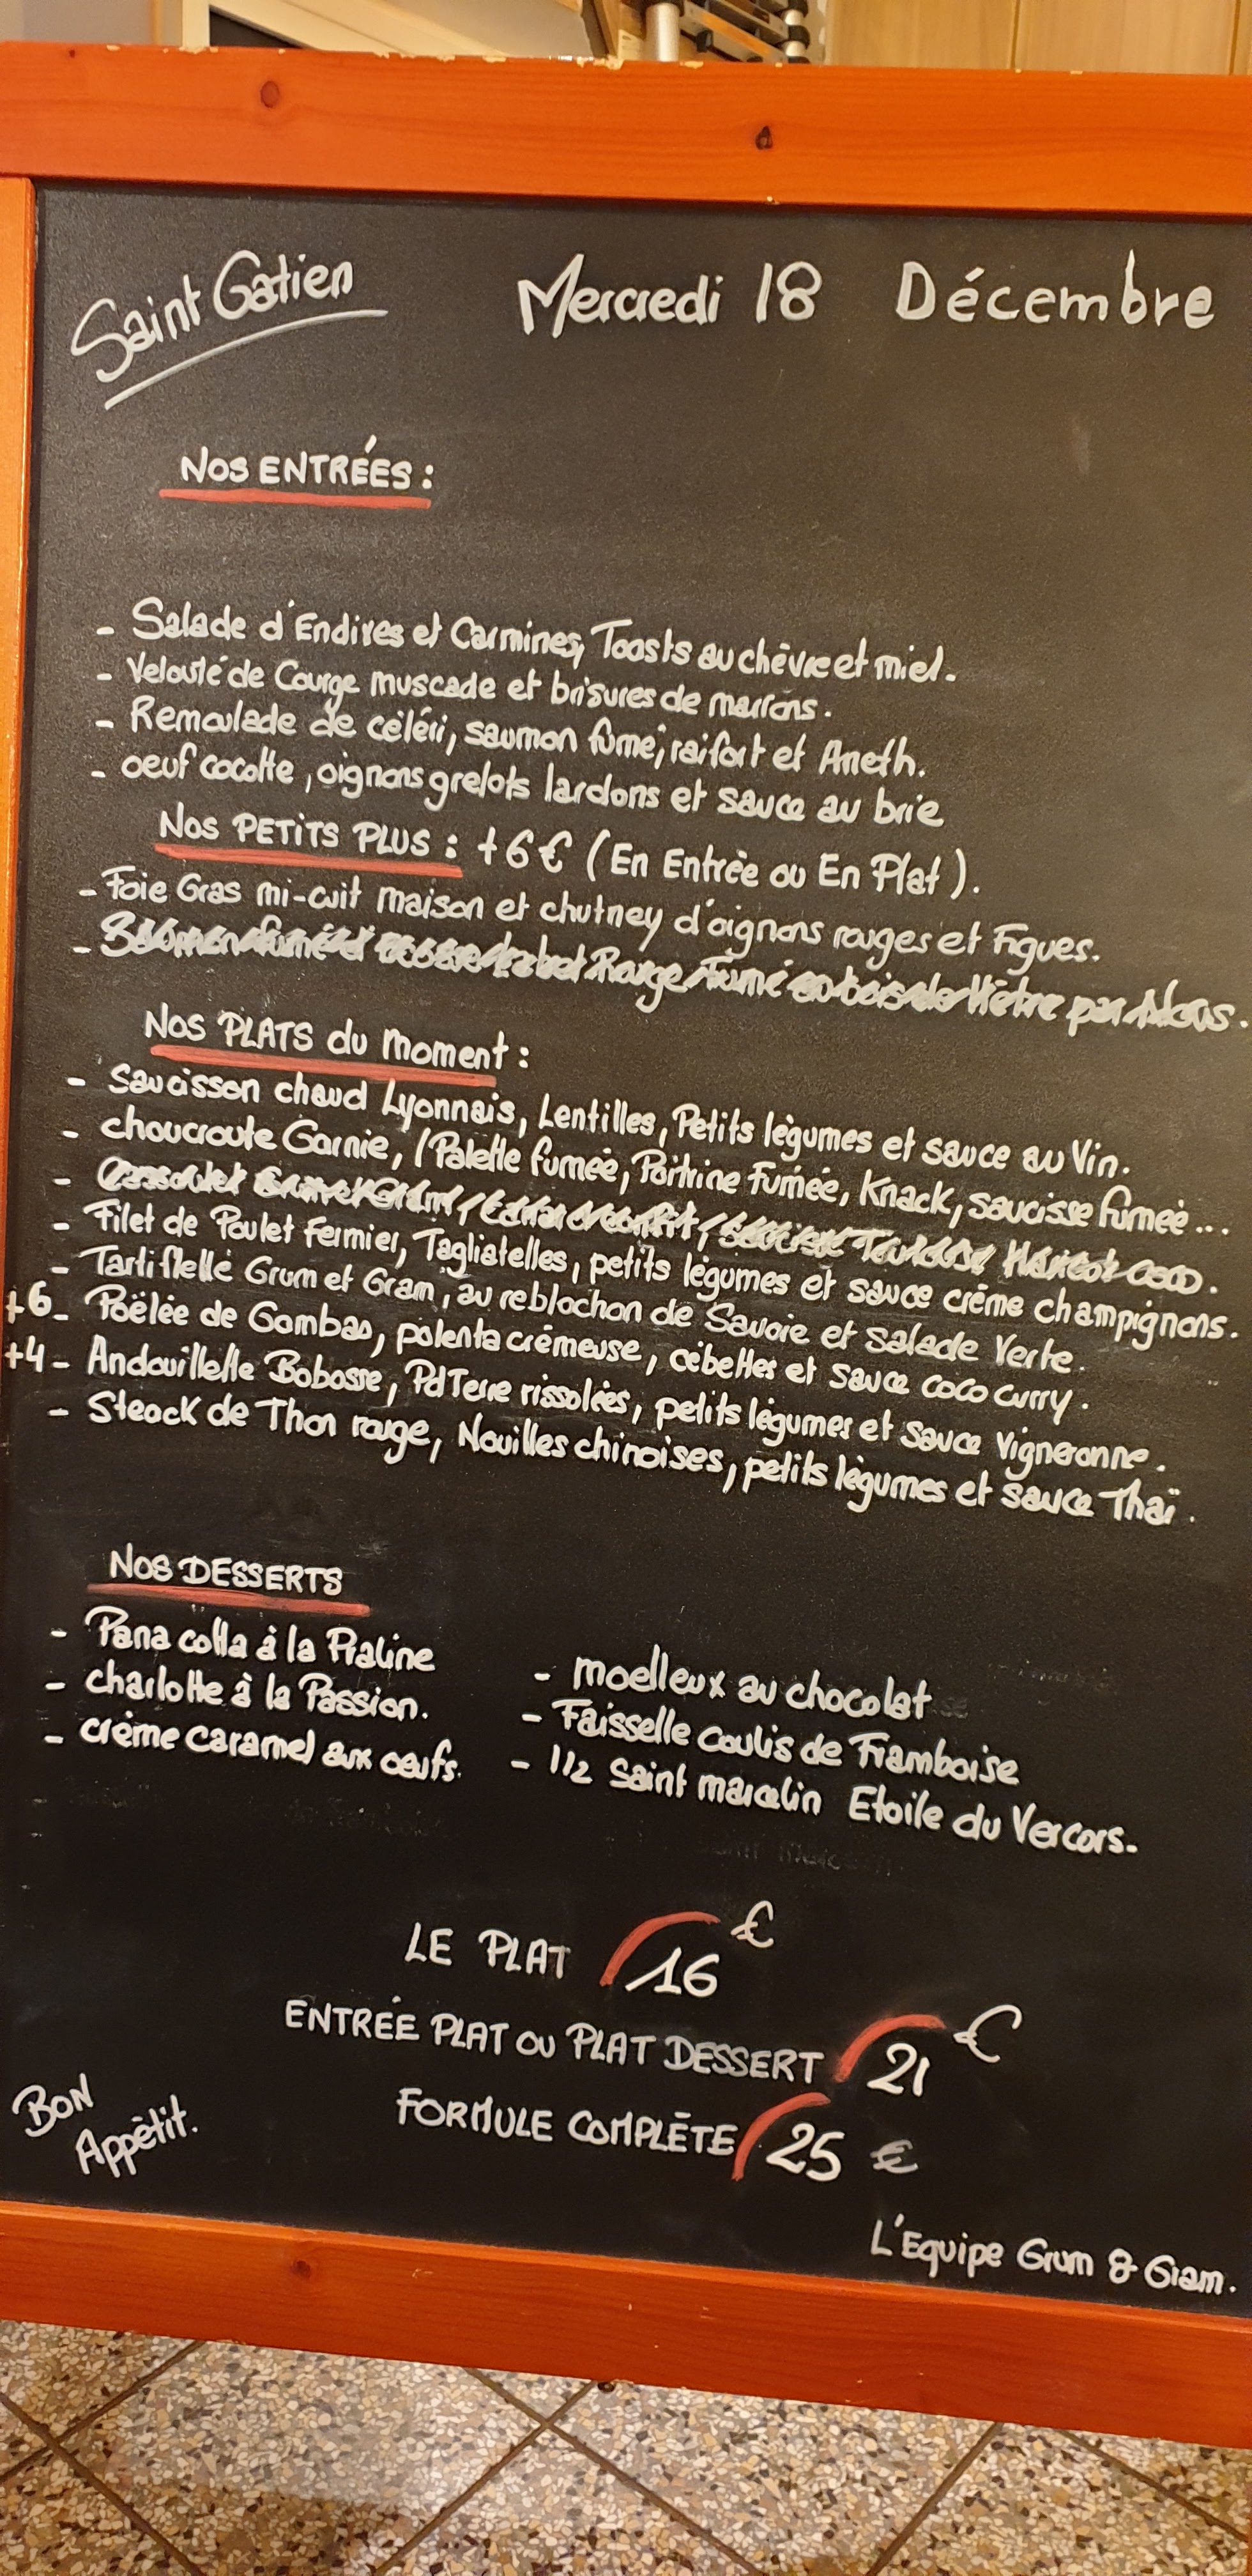 Saint Gatien
Mercredi 18 Décembre
NOS ENTRÉES :
- Salade d'Endives et Carmines, Toasts au chèvre et miel.
- Velouté de Courge muscade et brisures de marrons.
- Remoulade de céléri, saumon fumé, raifort et Aneth.
- oeuf cocotte, oignons grelots lardons et sauce au brie
NOS PETITS PLUS : +6€ (En Entrée ou En Plat).
- Foie Gras mi-cuit maison et chutney d'oignons rouges et Figues.
- Saumon fumé Label Rouge Fumé au bois de Hêtre par Nous.
NOS PLATS du Moment :
- Saucisson chaud Lyonnais, Lentilles, Petits légumes et sauce au Vin.
- choucroute Garnie, (Palette fumée, Poitrine Fumée, Knack, saucisse fumée...
- Cassoulet Haricot coco.
- Filet de Poulet Fermier, Tagliatelles, petits légumes et sauce crème champignons.
- Tartiflelle Grum et Gram, au reblochon de Savoie et salade Verte.
+6 - Poëlée de Gambas, polenta crémeuse, cébettes et sauce coco curry.
+4 - Andouillette Bobosse, Pd Terre rissolées, petits légumes et sauce Vigneronne.
- Steack de Thon rouge, Nouilles chinoises, petits légumes et sauce Thaï.
NOS DESSERTS
- Pana cotta à la Praline
- charlotte à la Passion.
- crème caramel aux oeufs.
- moelleux au chocolat
- Faisselle coulis de Framboise
- 1/2 Saint marcelin Etoile du Vercors.
LE PLAT 16 €
ENTRÉE PLAT OU PLAT DESSERT 21 €
FORMULE COMPLÈTE 25 €
BON
Appétit.
L'Equipe Grum & Gram.